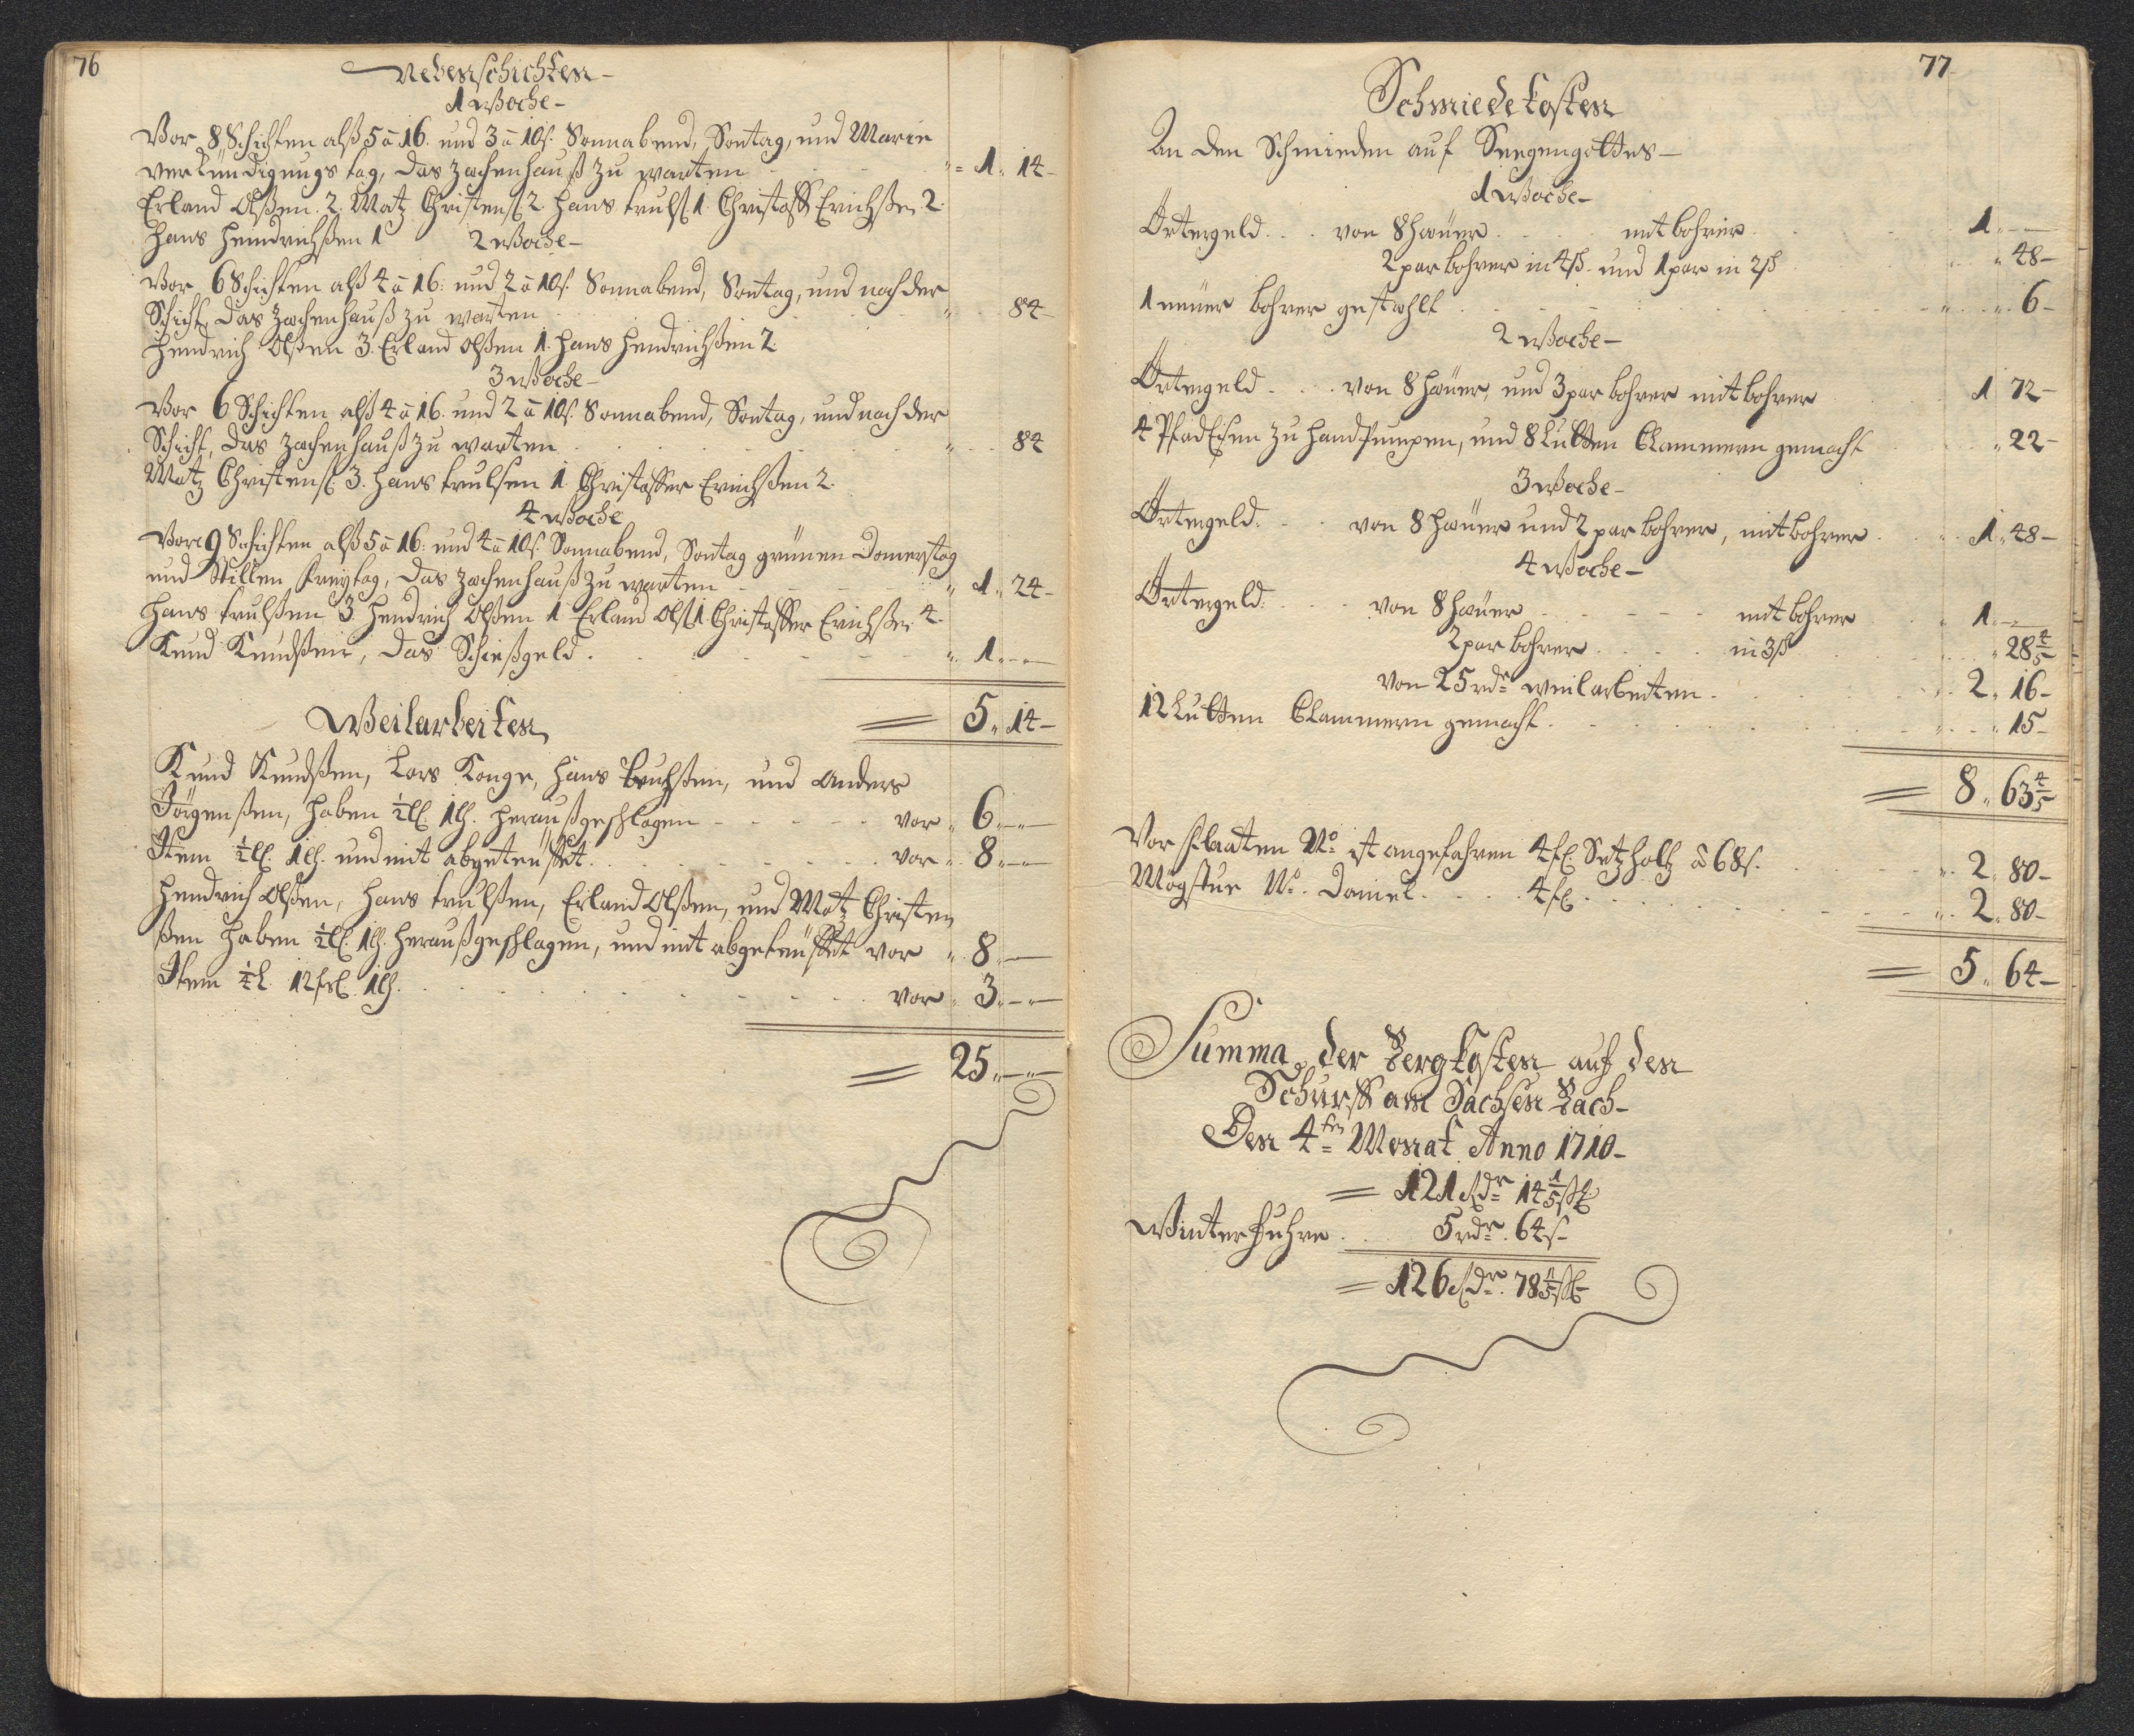 76
Nebenschichten
1 Woche
Vor 8 Schichten alß 5 â 16. und 3 â 10 s. Sonnabend, Sontag, und Marie
verkündigungs tag, das Zechenhauß zu warten 1. 14
Erland Olßen. 2. Matz Christens. 2. Hans truls. 1. Christoff Erichßen 2.
Hans Hendrichßen 1
2 Woche
Vor 6 Schichten alß 4 â 16. und 2 â 10 s. Sonnabend, Sontag, und nach der
Schicht, das Zechenhauß zu warten 84
Hendrich Olßen 3. Erland Olßen 1. Hans Hendrichßen 2.
3 Woche
Vor 6 Schichten alß 4 â 16. und 2 â 10 s. Sonnabend, Sontag, und nach der
Schicht, das Zechenhauß zu warten 84
Matz Christens. 3. Hans trulsen 1. Christoffer Erichßen 2.
4 Woche
Vor 9 Schichten alß 5 â 16. und 4 â 10 s. Sonnabend, Sontag grünen Donnerstag
und Stillen freytag, das Zechenhauß zu warten 1. 24
Hans trulßen 3 Hendrich Olßen 1 Erland Ols. 1 Christoffer Erichßen 4.
Knud Knudßen, das Schießgeld 1.
= 5. 14
Weilarbeiten
Knud Knudßen, Lars Konge, Hans, und Anders
Jörgenßen, haben ½ 1 herausgeschlagen vor 6.
Item ½ 1 und mit abgeteüffet vor 8.
Hendrich Olßen, Hans trulßen, Erland Olßen, und Matz Christen
ßen haben ½ 1 herausgeschlagen, und mit abgeteüffet vor 8.
Item ¼ 12 1 vor 3.
= 25.
77
Schmiedekosten
An den Schmieden auf Seegengottes
1 Woche
Örtergeld von 8 Häuer mit bohrer 1.
2 par bohrer in 4 ß. und 1 par in 2 ß 48
1 neüer bohrer gestahlt 6
2 Woche
Örtergeld von 8 Häuer, und 3 par bohrer mit bohrer 1 72
4 PfadEisen zu Handpumpen, und 8 Lutten Clammern gemacht 22
3 Woche
Örtergeld von 8 Häuer und 2 par bohrer, mit bohrer 1. 48
4 Woche
Örtergeld von 8 Häuer mit bohrer 1.
2 par bohrer in 3 ß 28 4/5
von 25 rdr weilarbeiten 2. 16
12 Lutten Clammern gemacht 15
= 8. 63 4/5
Vor No. ist angefahren 4 Setzholtz â 68 s. 2. 80
No. Daniel 4 2. 80
= 5. 64
Summa der Bergkosten auf den
Schurff am Sachsen Bach
Den 4ten Monat Anno 1710
= 121 Rdr 14 1/5 ß
Winterfuhre 5 rdr. 64 s
= 126 Rdr. 78 1/5 ß